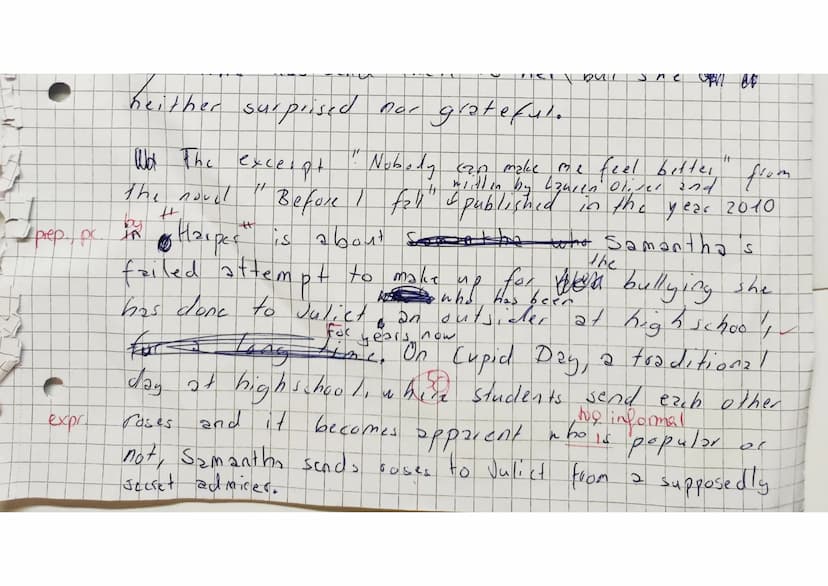 neither surprised nor grateful.
The excerpt "Nobody can make me feel better," from
the novel "Before I fall" written by Lauren Oliver and published in the year 2010
prep., pc. by "Harper" is about Samantha's
failed attempt to make up for the bullying she
has done to Juliet, an outsider at high school,
who has been
for years now. On Cupid Day, a traditional
day at high school, where students send each other
expr. roses and it becomes apparent who is popular or
too informal
not, Samantha sends roses to Juliet from a supposedly
secret admirer.